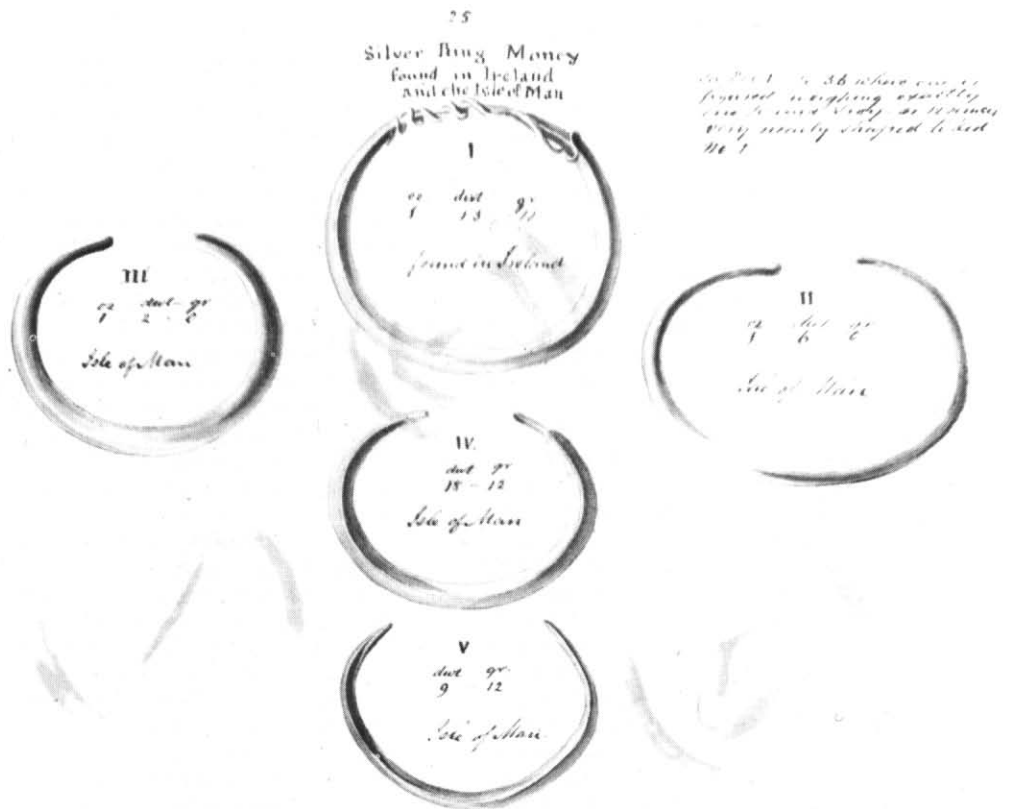 25
Silver Ring Money
found in Ireland
and the Isle of Man
where one is
figured weighing exactly
very nearly shaped
No 1
I
oz dwt gr
1 13
found in Ireland
III
oz dwt gr
1 - 2 - 0
Isle of Man
II
oz dwt gr
1 6 0
Isle of Man
IV.
dwt gr
18 - 12
Isle of Man
V
dwt gr.
9 12
Isle of Man